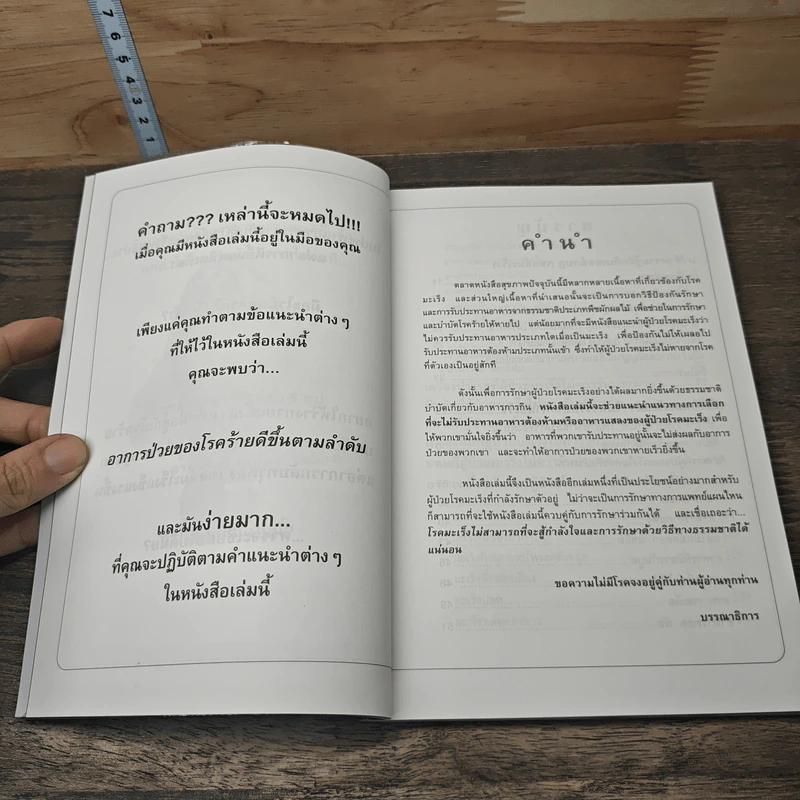 7 6 5 4 3 2 1
คำถาม??? เหล่านี้จะหมดไป!!!
เมื่อคุณมีหนังสือเล่มนี้อยู่ในมือของคุณ
เพียงแค่คุณทำตามข้อแนะนำต่าง ๆ
ที่ให้ไว้ในหนังสือเล่มนี้
คุณจะพบว่า...
อาการป่วยของโรคร้ายดีขึ้นตามลำดับ
และมันง่ายมาก...
ที่คุณจะปฏิบัติตามคำแนะนำต่าง ๆ
ในหนังสือเล่มนี้
คำนำ
ตลาดหนังสือสุขภาพปัจจุบันนี้มีหลากหลายเนื้อหาที่เกี่ยวข้องกับโรค
มะเร็ง และส่วนใหญ่เนื้อหาที่นำเสนอนั้นจะเป็นการบอกวิธีป้องกันรักษา
และการรับประทานอาหารจากธรรมชาติประเภทพืชผักผลไม้ เพื่อช่วยในการรักษา
และบำบัดโรคร้ายให้หายไป แต่น้อยมากที่จะมีหนังสือแนะนำผู้ป่วยโรคมะเร็งว่า
ไม่ควรรับประทานอาหารประเภทใดเมื่อเป็นมะเร็ง เพื่อป้องกันไม่ให้เผลอไป
รับประทานอาหารต้องห้ามประเภทนั้นเข้า ซึ่งทำให้ผู้ป่วยโรคมะเร็งไม่หายจากโรค
ที่ตัวเองเป็นอยู่สักที
ดังนั้นเพื่อการรักษาผู้ป่วยโรคมะเร็งอย่างได้ผลมากยิ่งขึ้นด้วยธรรมชาติ
บำบัดเกี่ยวกับอาหารการกิน หนังสือเล่มนี้จะช่วยแนะนำแนวทางการเลือก
ที่จะไม่รับประทานอาหารต้องห้ามหรืออาหารแสลงของผู้ป่วยโรคมะเร็ง เพื่อ
ให้พวกเขามั่นใจยิ่งขึ้นว่า อาหารที่พวกเขารับประทานอยู่นั้นจะไม่ส่งผลกับอาการ
ป่วยของพวกเขา และจะทำให้อาการป่วยของพวกเขาหายเร็วยิ่งขึ้น
หนังสือเล่มนี้จึงเป็นหนังสืออีกเล่มหนึ่งที่เป็นประโยชน์อย่างมากสำหรับ
ผู้ป่วยโรคมะเร็งที่กำลังรักษาตัวอยู่ ไม่ว่าจะเป็นการรักษาทางการแพทย์แผนไหน
ก็สามารถที่จะใช้หนังสือเล่มนี้ควบคู่กับการรักษาร่วมกันได้ และเชื่อเถอะว่า...
โรคมะเร็งไม่สามารถที่จะสู้กำลังใจและการรักษาด้วยวิธีทางธรรมชาติได้
แน่นอน
ขอความไม่มีโรคจงอยู่คู่กับท่านผู้อ่านทุกท่าน
บรรณาธิการ